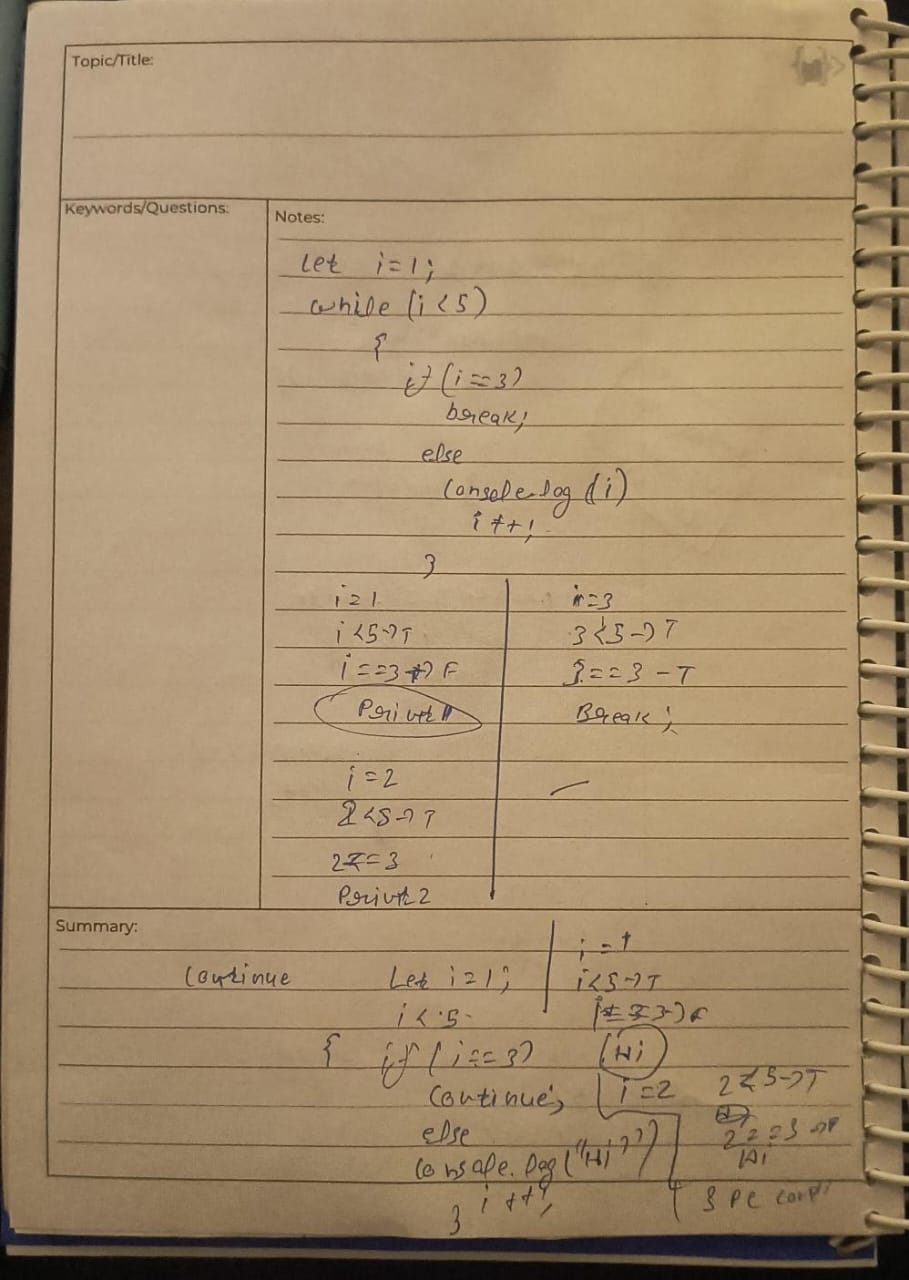 Topic/Title:
Keywords/Questions:
Notes:
let i=1;
while (i<5)
{
if (i==3)
break;
else
console.log(i)
i++;
}
i=1
i<5→T
i==3→F
Print 1
i=2
2<5→T
2==3
Print 2
i=3
3<5→T
3==3-T
Break;
Summary:
Continue
Let i=1;
i<5
{ if (i==3)
Continue;
else
console.log("Hi")
i++;
}
i=1
i<5→T
Hi
i=2
2<5→T
2==3→F
Hi
3 pe